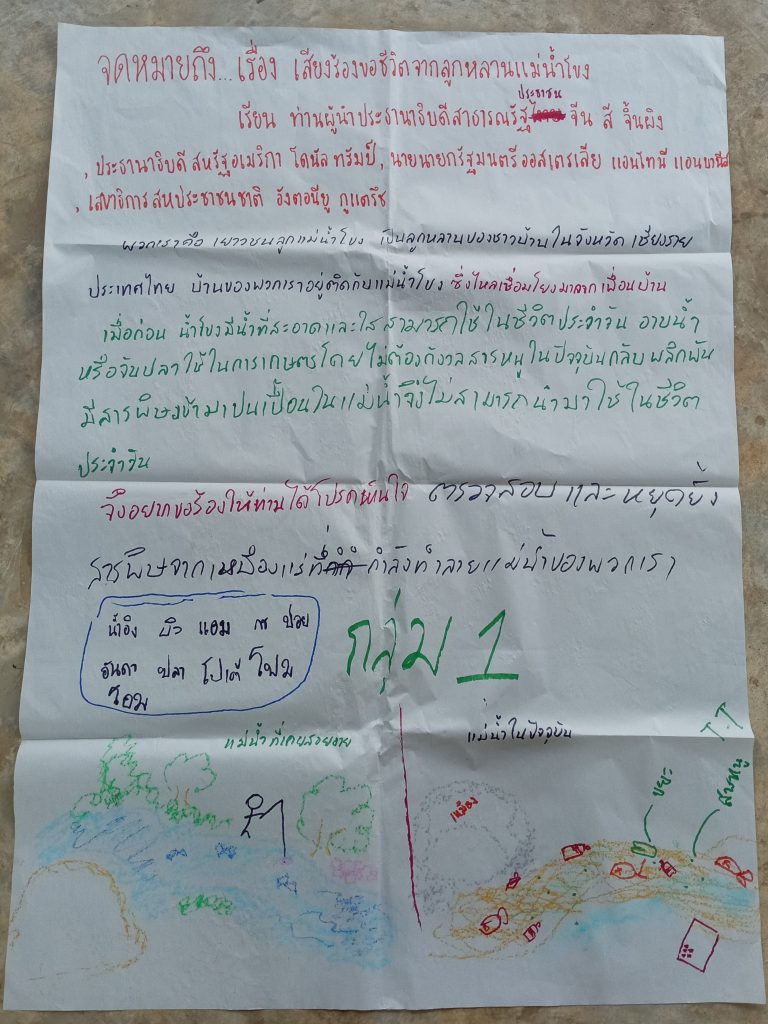 จดหมายถึง... เรื่อง เสียงร้องขอชีวิตจากลูกหลานแม่น้ำโขง
ประชาชน
เรียน ท่านผู้นำประธานาธิบดีสาธารณรัฐ จีน สี จิ้นผิง
, ประธานาธิบดี สหรัฐอเมริกา โดนัล ทรัมป์, นายนายกรัฐมนตรี ออสเตรเลีย แอนโทนี แอนบานีส
, เลขาธิการสหประชาชนชาติ อังตอนียู กูแตรีช
พวกเราคือ เยาวชนลูกแม่น้ำโขง เป็นลูกหลานของชาวบ้านในจังหวัด เชียงราย
ประเทศไทย บ้านของพวกเราอยู่ติดกับแม่น้ำโขง ซึ่งไหลเชื่อมโยงมาจากเพื่อนบ้าน
เมื่อก่อน น้ำโขงมีน้ำที่สะอาดและใสสามารถใช้ในชีวิตประจำวัน อาบน้ำ
หรือจับปลาใช้ในการเกษตรโดยไม่ต้องกังวลสารหนูในปัจจุบันกลับพลิกผัน
มีสารพิษเข้ามาเปนเปื้อนในแม่น้ำจึงไม่สามารถนำมาใช้ในชีวิต
ประจำวัน
จึงอยากขอร้องให้ท่านได้โปรดเห็นใจ ตรวจสอบ และ หยุดยั้ง
สารพิษจากเหมืองแร่ที่กำลังทำลายแม่น้ำของพวกเรา
น้ำอิง บิว แอม ปอย
ธันดา ปลา โปเต้ โฟม
โอม
กลุ่ม 1
แม่น้ำที่เคยสวยงาม
แม่น้ำในปัจจุบัน
T.T
ขยะ
สารหนู
เหมือง